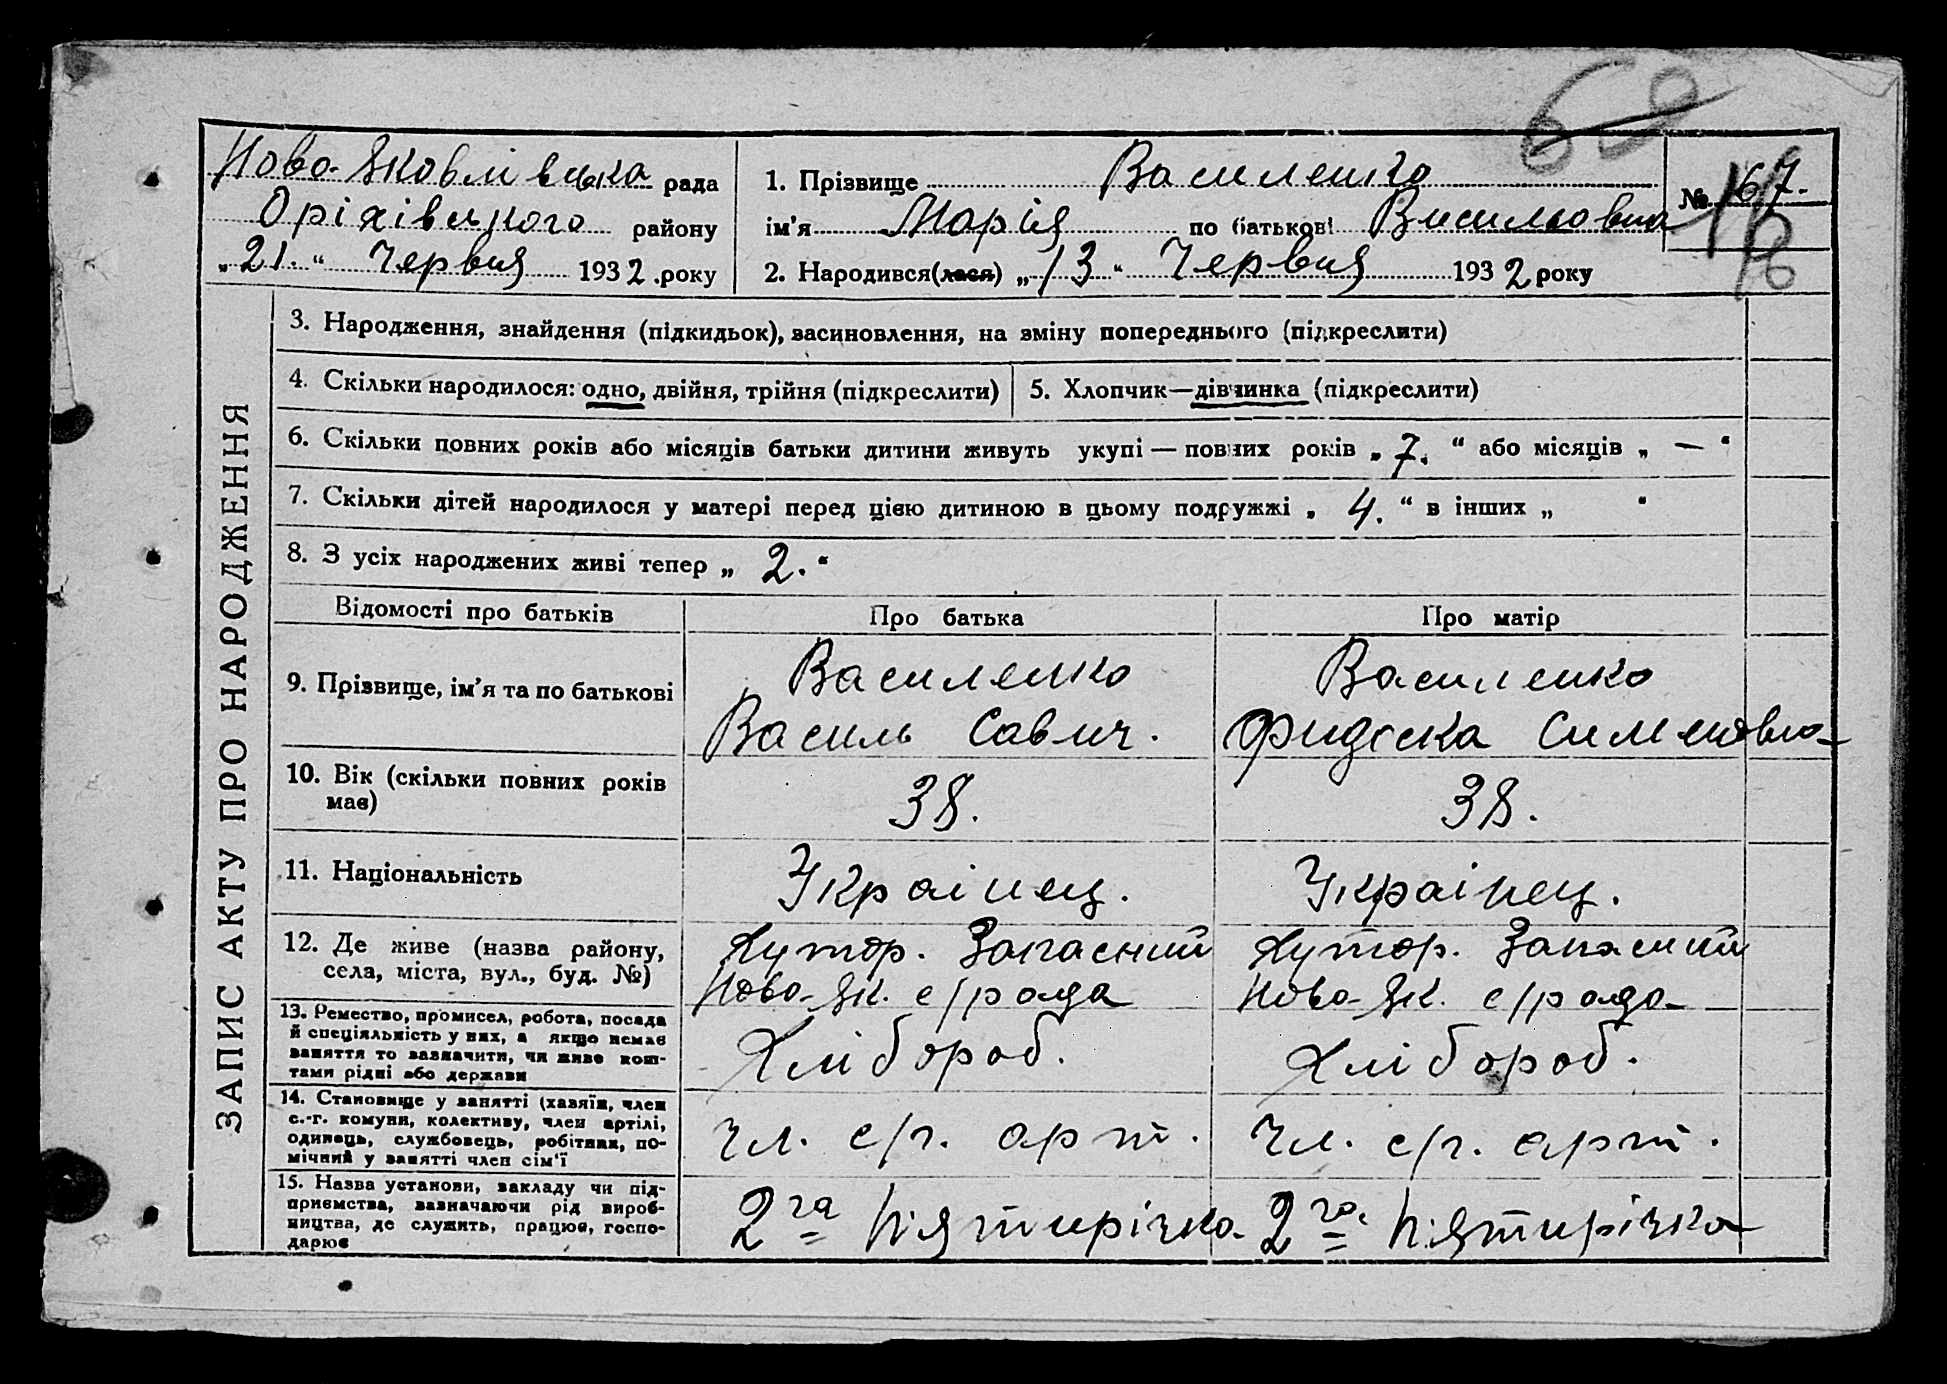 Ново-Яковлівська рада
Оріхівського району
„21.“ Червня 1932 року
1. Прізвище Василенко
ім'я Марія по батькові Васильовна
2. Народився(лася) „13“ Червня 1932 року
№ 67.
ЗАПИС АКТУ ПРО НАРОДЖЕННЯ
3. Народження, знайдення (підкидьок), засиновлення, на зміну попереднього (підкреслити)
4. Скільки народилося: одно, двійня, трійня (підкреслити)
5. Хлопчик—дівчинка (підкреслити)
6. Скільки повних років або місяців батьки дитини живуть укупі — повних років „7.“ або місяців „—“
7. Скільки дітей народилося у матері перед цією дитиною в цьому подружжі „4.“ в інших „ “
8. З усіх народжених живі тепер „2.“
Відомості про батьків Про батька Про матір
9. Прізвище, ім'я та по батькові
Василенко
Василь Савич.
Василенко
Фидоска Сименовна
10. Вік (скільки повних років
має)
38. 38.
11. Національність Украінец. Украінец.
12. Де живе (назва району,
села, міста, вул., буд. №)
Хутор. Запасний
Ново-Як. с/рада
Хутор. Запасний
Ново-Як. с/рада
13. Ремество, промисел, робота, посада
й спеціяльність у них, а якщо немає
заняття то зазначити, чи живе кош-
тами рідні або держави
Хлібороб. Хлібороб.
14. Становище у занятті (хазяїн, член
с.-г. комуни, колективу, член артілі,
одинець, службовець, робітник, по-
мічний у занятті член сім'ї
чл. с/г. арт. чл. с/г. арт.
15. Назва установи, закладу чи під-
приємства, зазначаючи рід вироб-
ництва, де служить, працює, госпо-
дарює
2га П'ятирічка 2га П'ятирічка